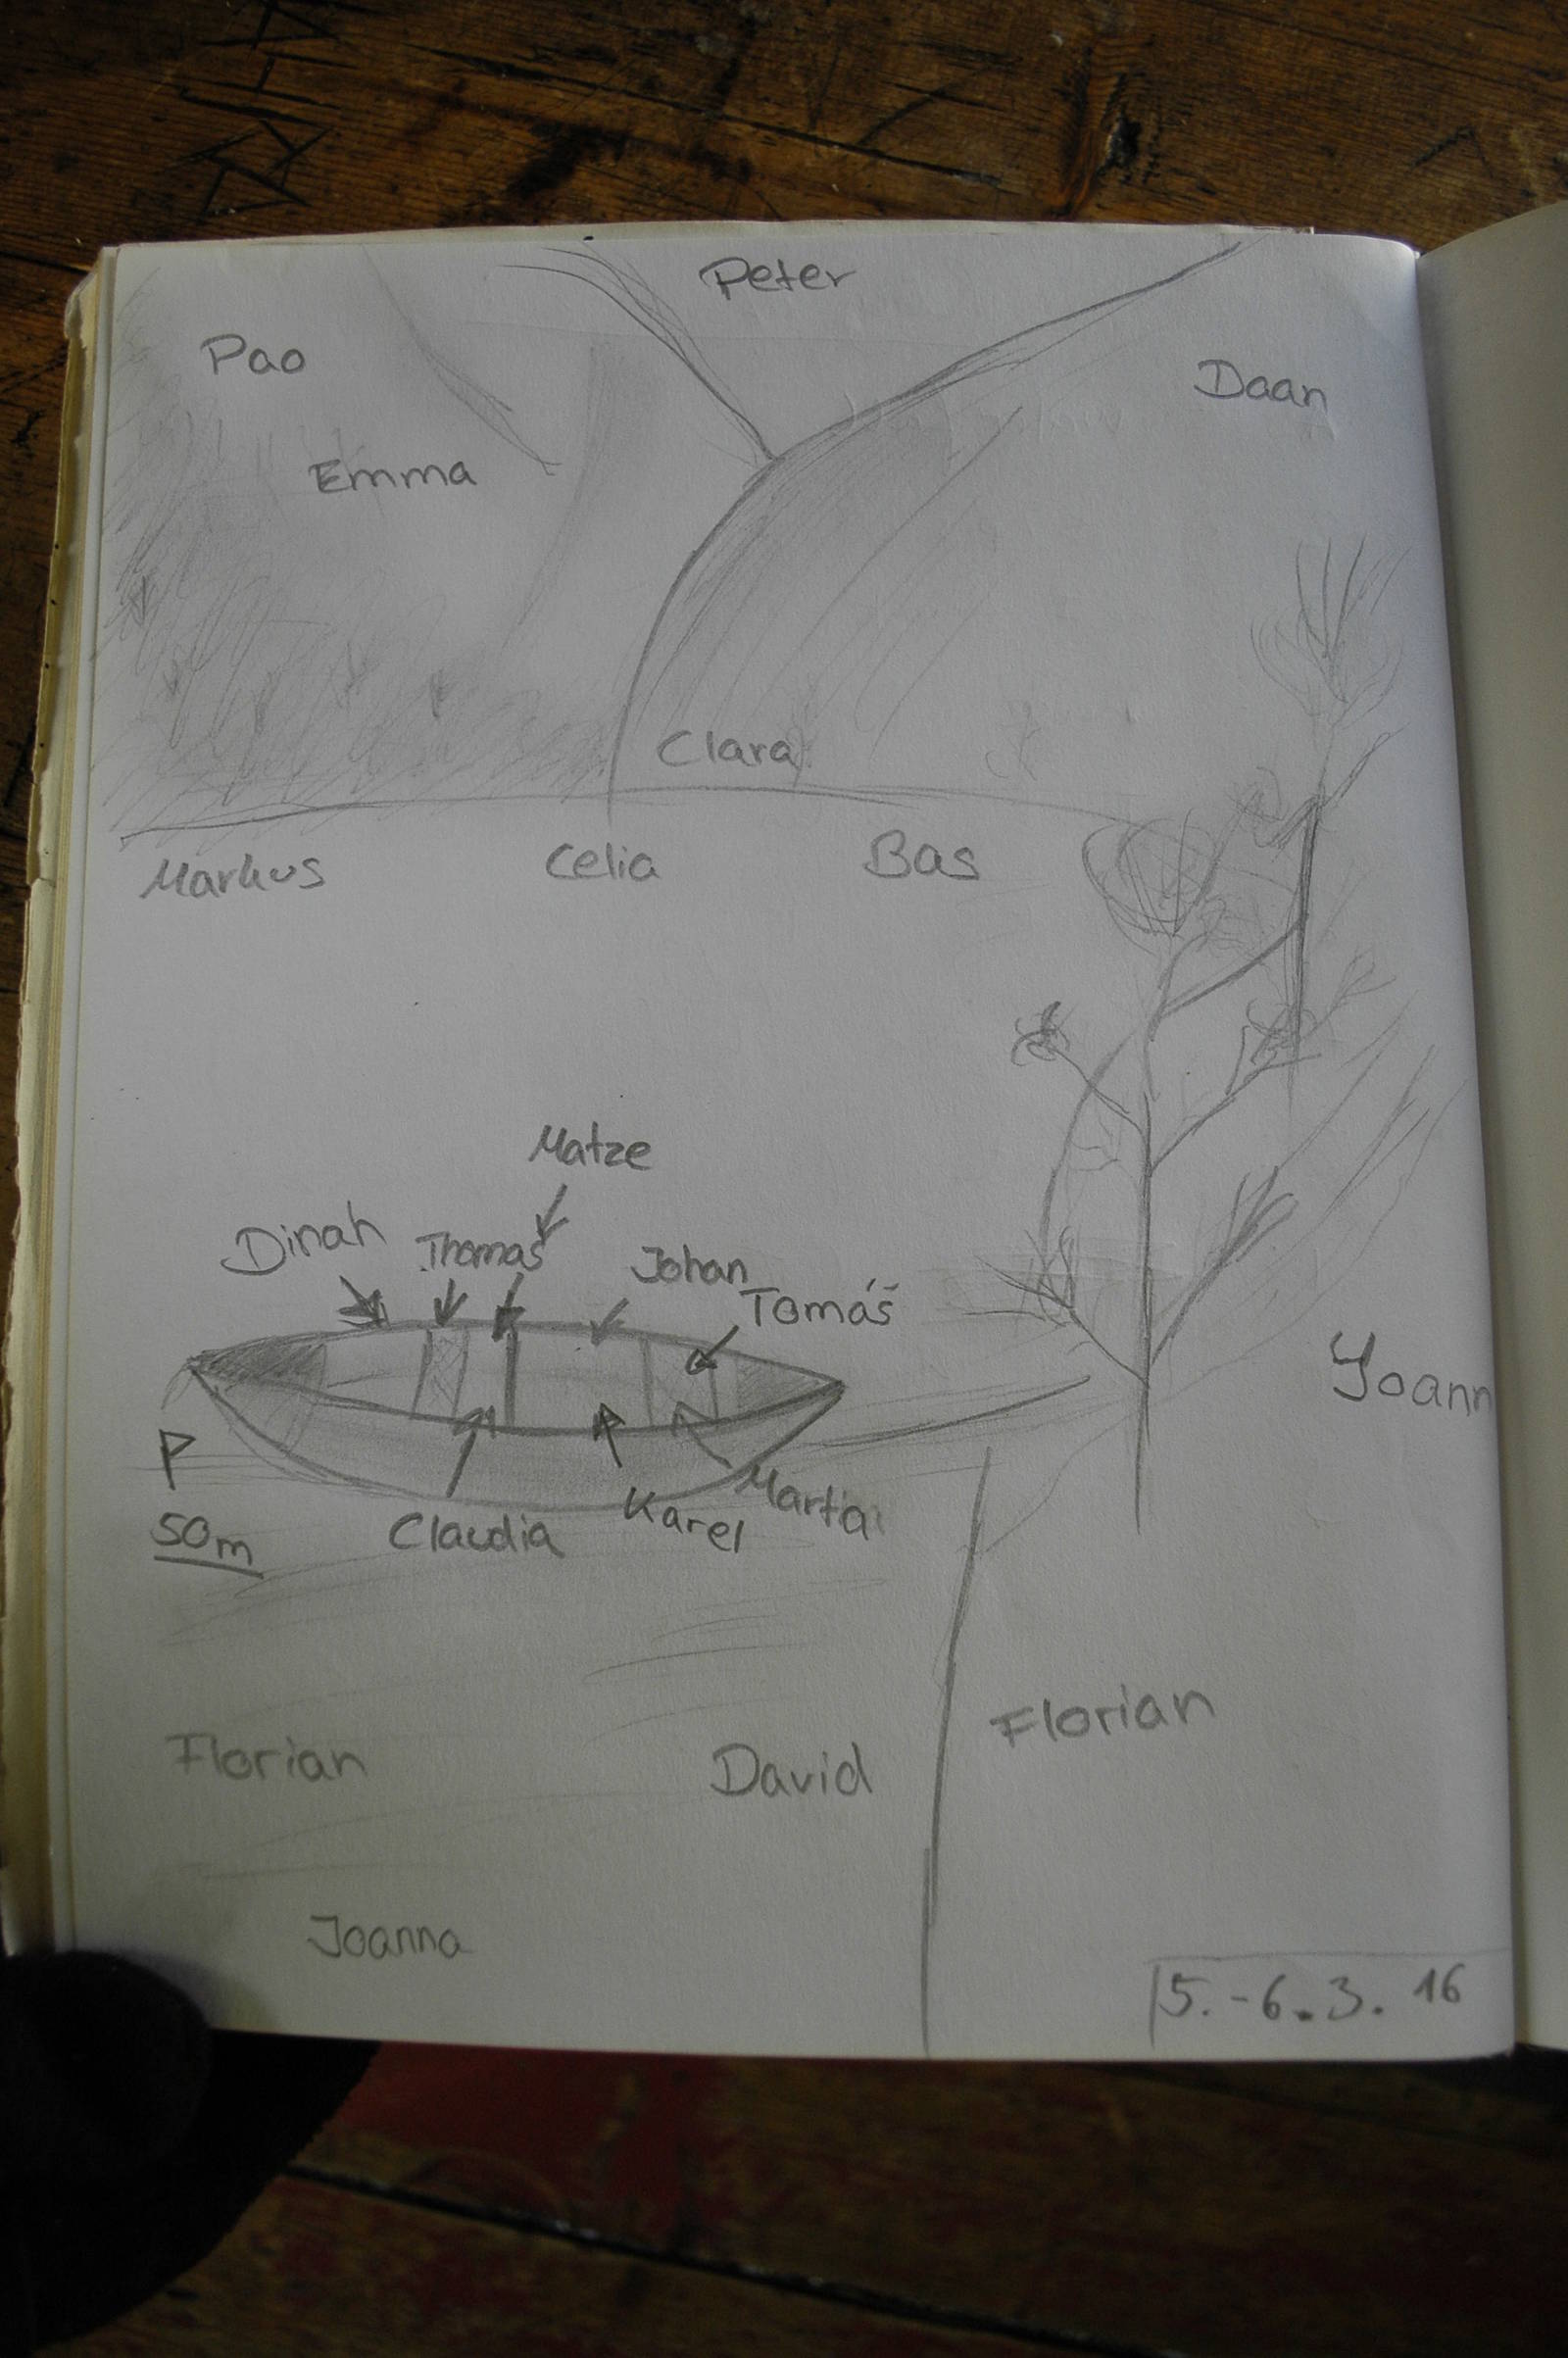 Peter
Pao
Daan
Emma
Clara
Markus
Celia
Bas
Matze
Dinah
Thomas
Johan
Tomáš
Yoann
P
50m
Claudia
Karel
Florian
David
Florian
Joanna
5.-6.3.16